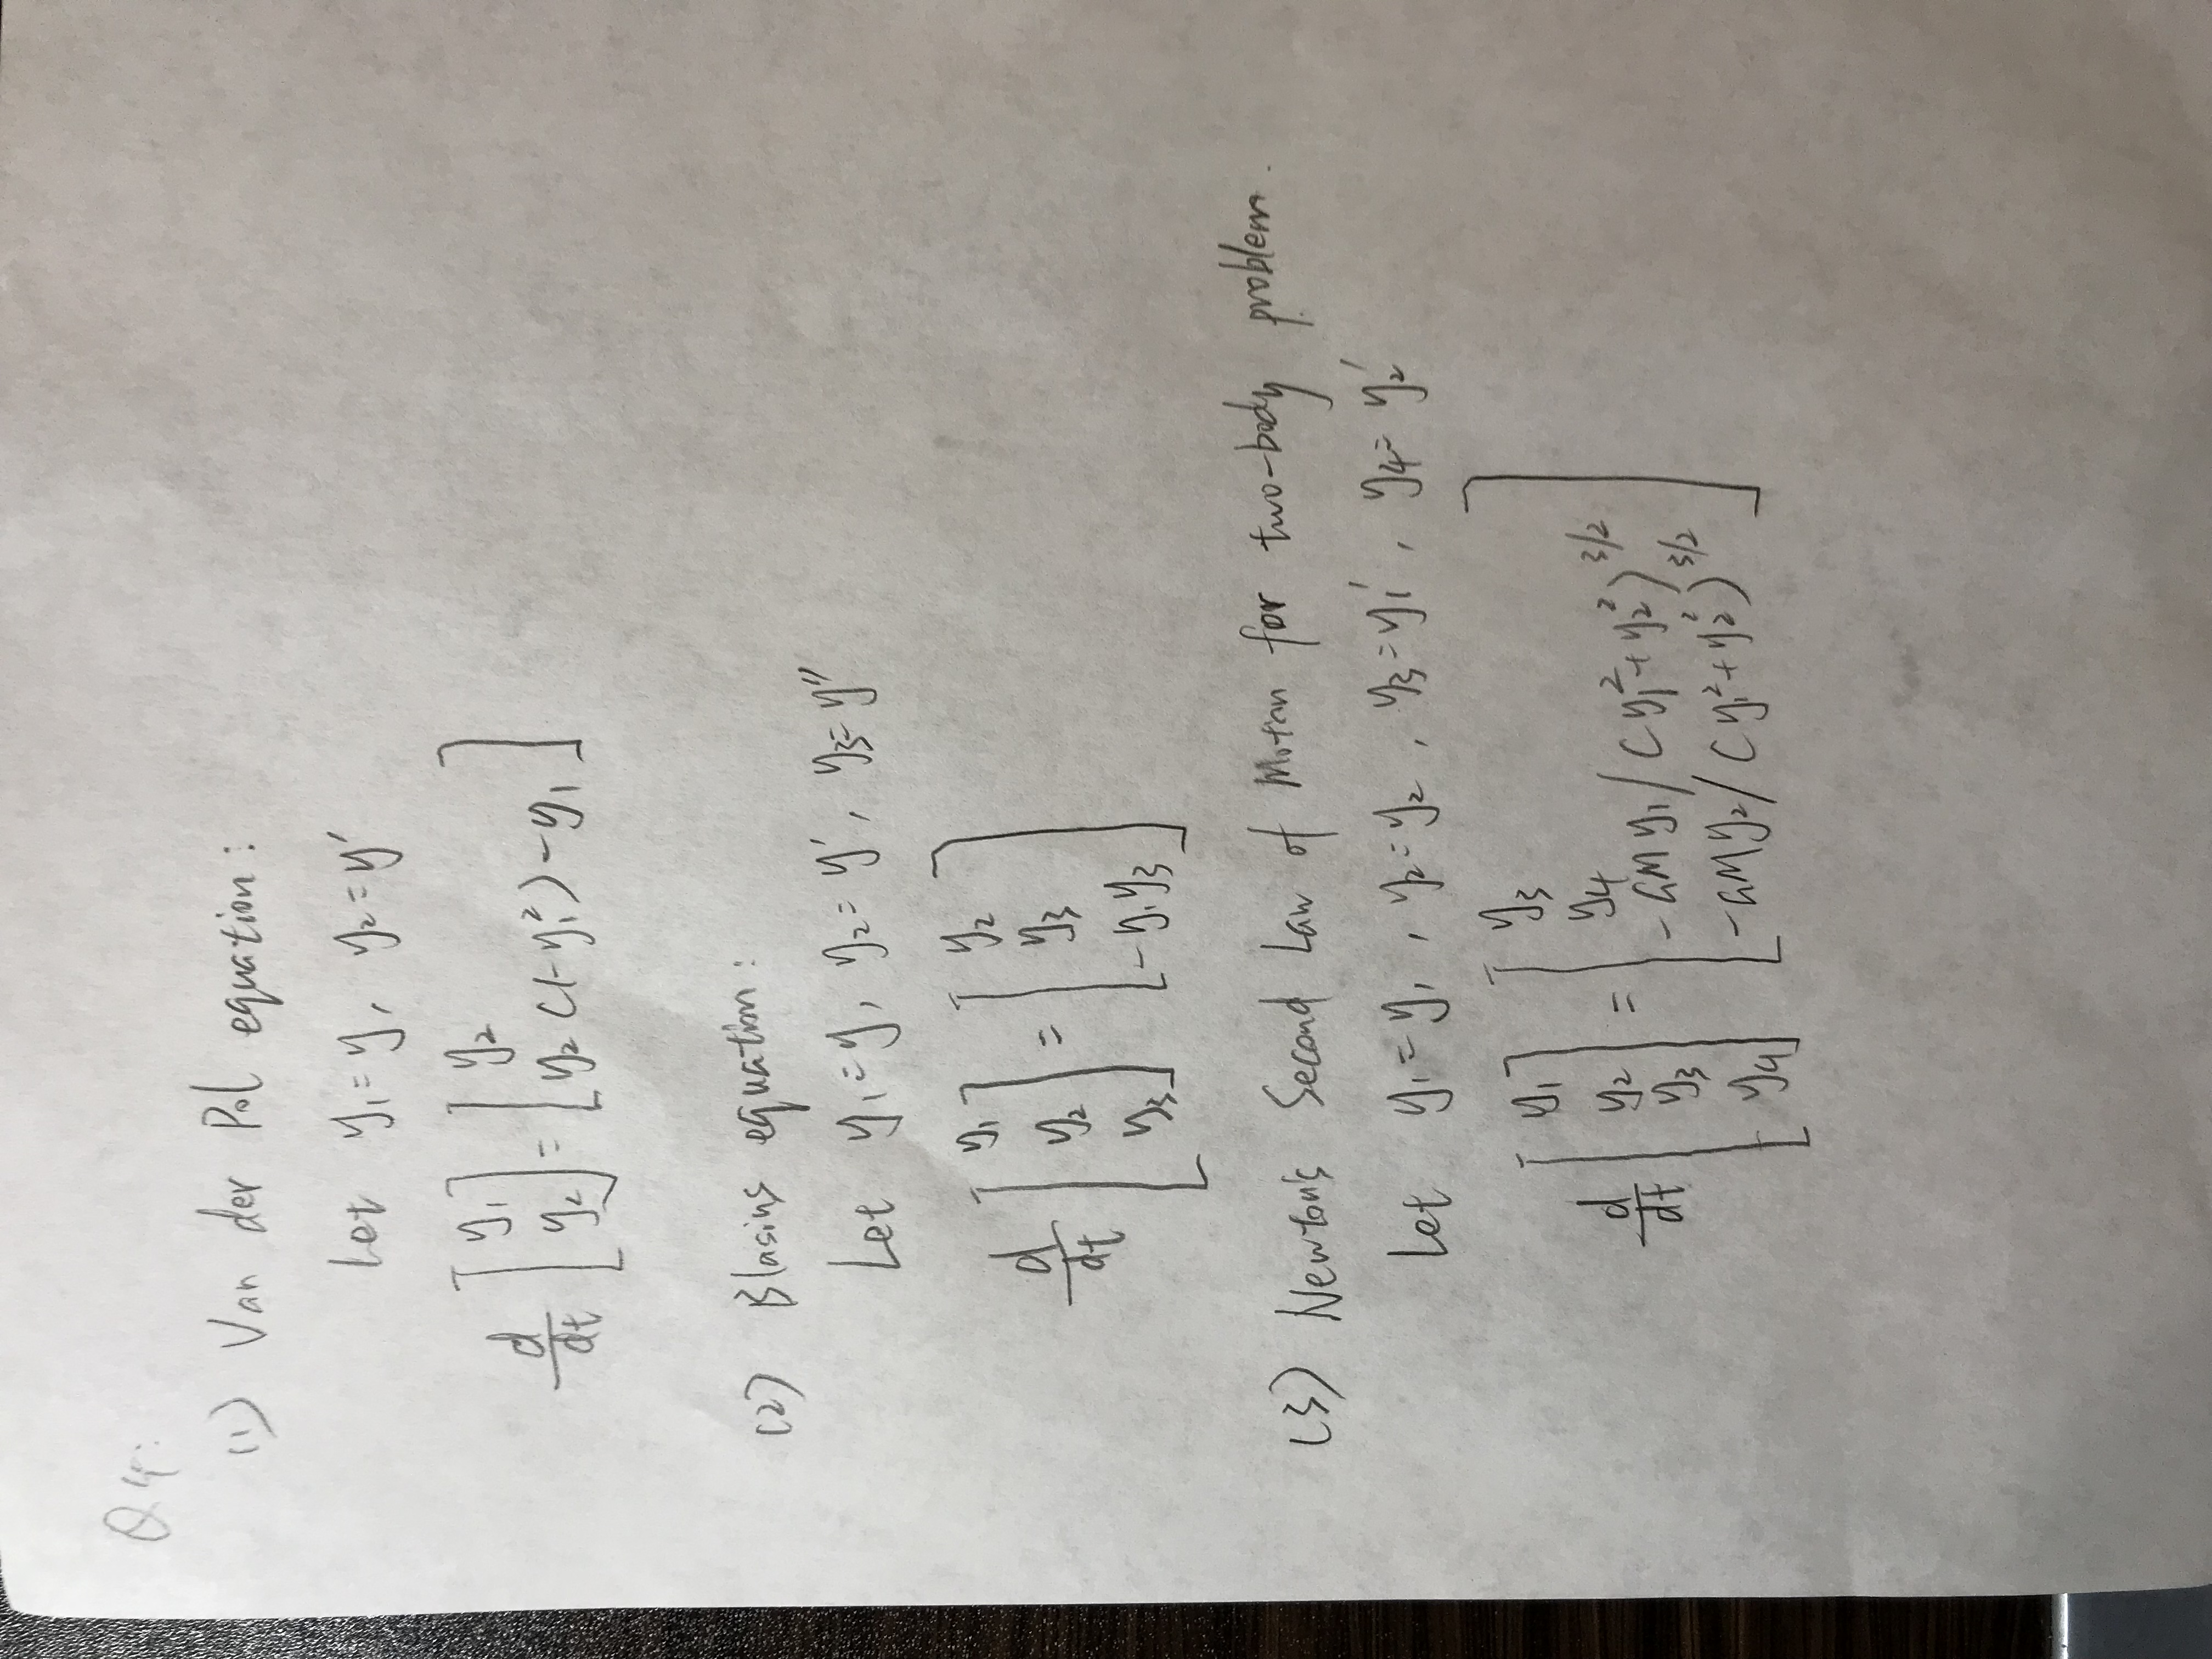 Q4:
(1) Van der Pol equation:
Let y₁=y, y₂=y′
d/dt [y₁; y₂] = [y₂; y₂(1-y₁²)-y₁]
(2) Blasius equation:
Let y₁=y, y₂=y′, y₃=y″
d/dt [y₁; y₂; y₃] = [y₂; y₃; -y₁y₃]
(3) Newton's Second Law of Motion for two-body problem.
Let y₁=y₁, y₂=y₂, y₃=y₁′, y₄=y₂′
d/dt [y₁; y₂; y₃; y₄] = [y₃; y₄; -GMy₁/(y₁²+y₂²)^3/2; -GMy₂/(y₁²+y₂²)^3/2]